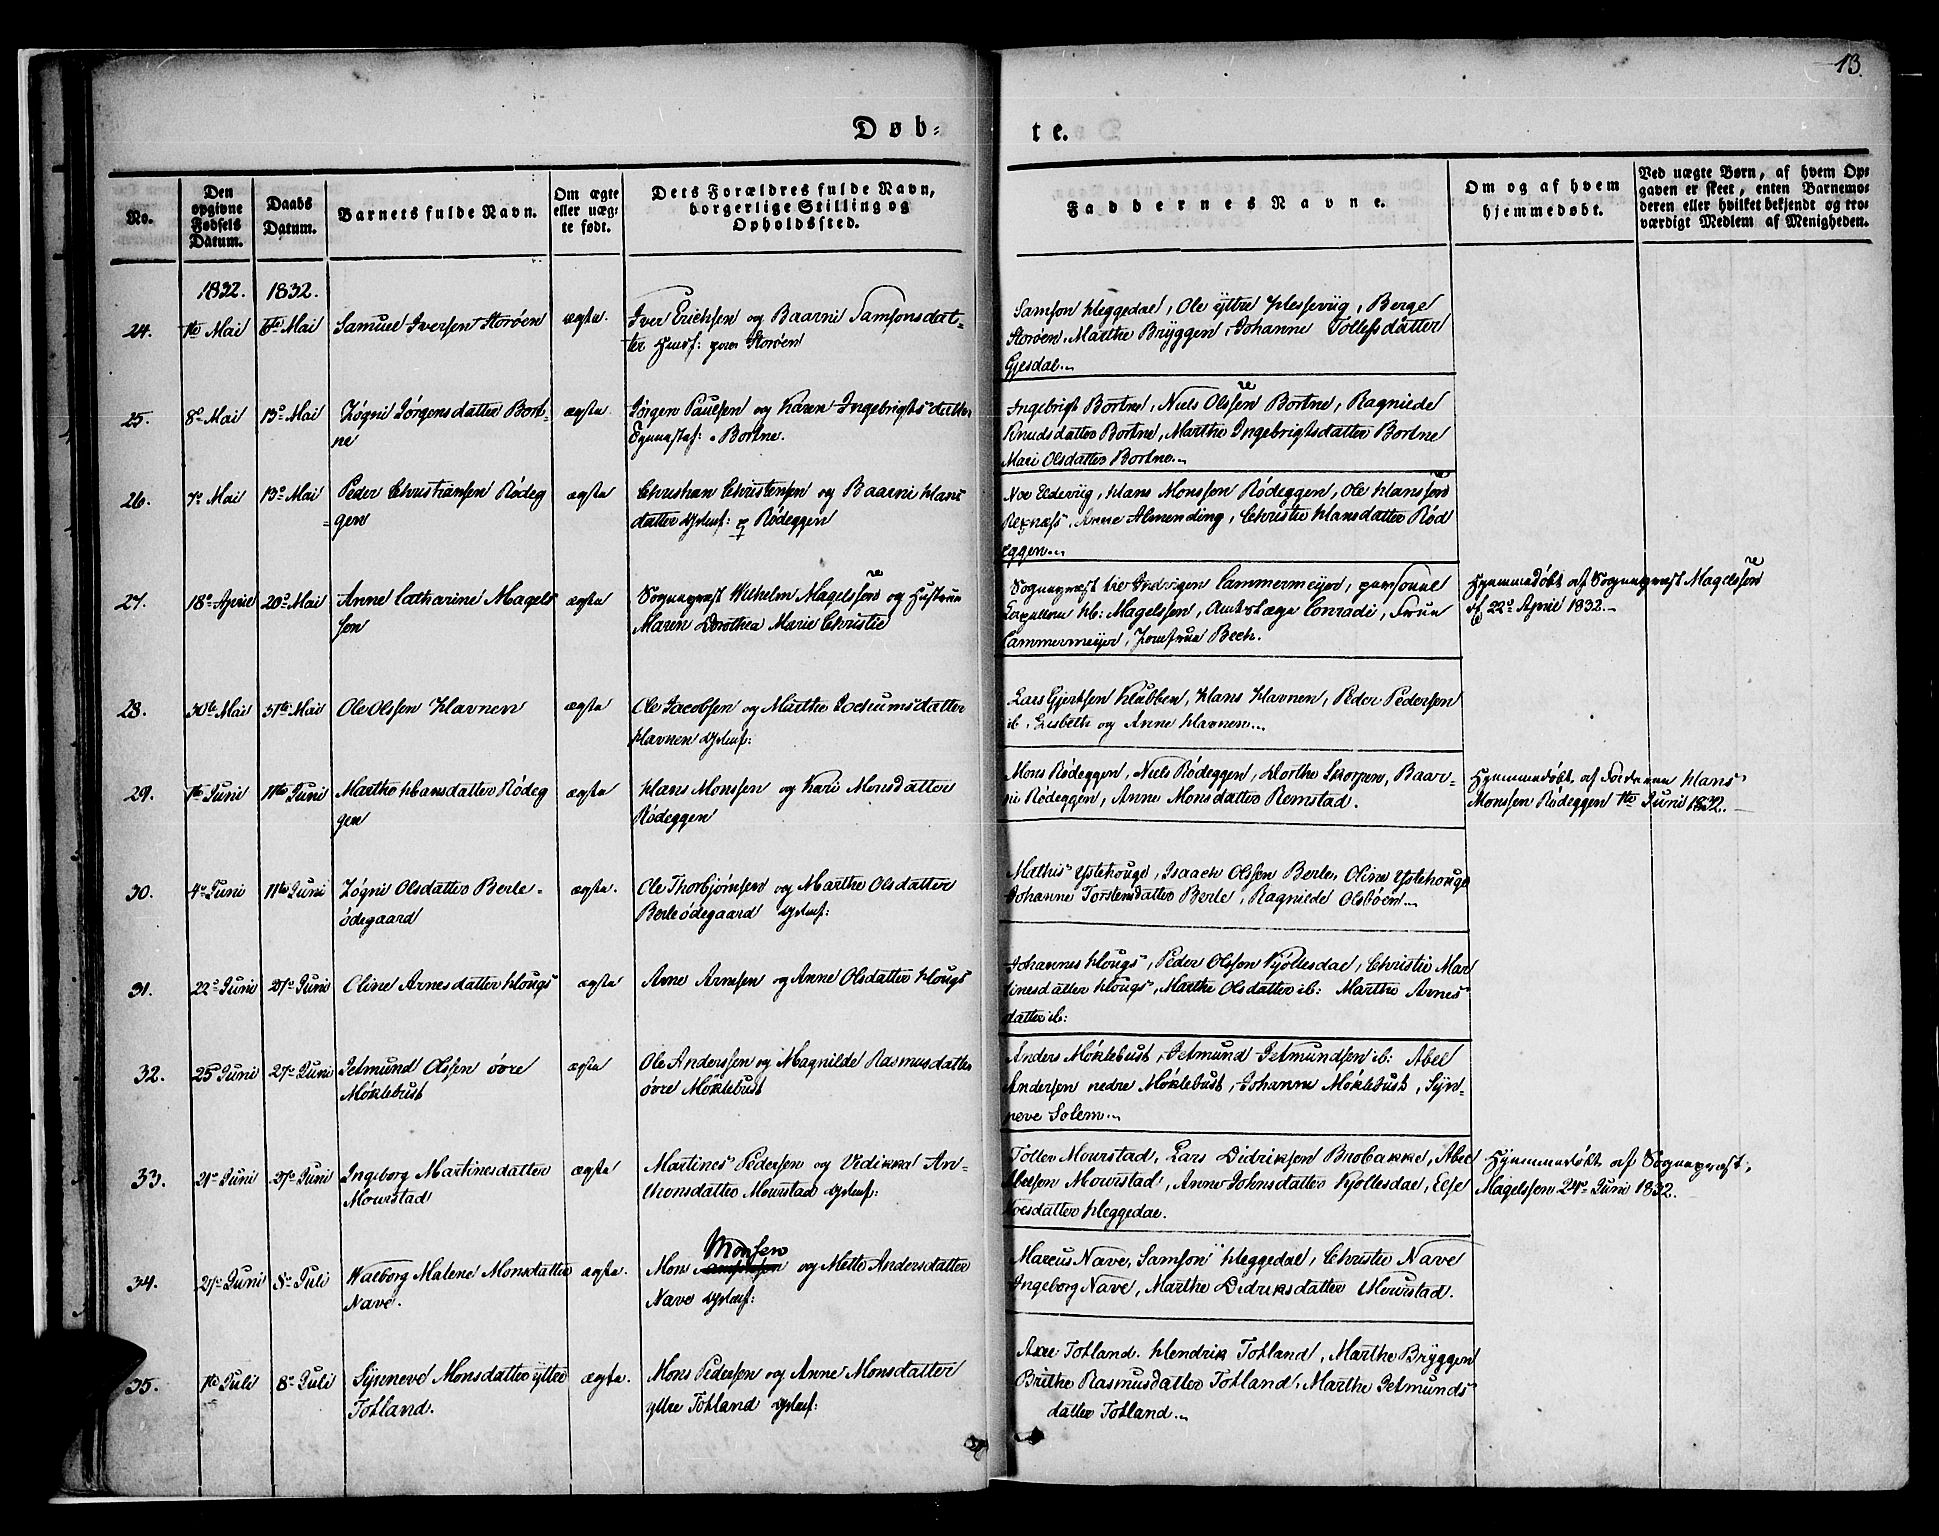 13.
Døb-
te.
No.
Den opgivne Fødsels Datum.
Daabs Datum.
Barnets fulde Navn.
Om ægte eller uæg-
te født.
Dets Forældres fulde Navn,
borgerlige Stilling og
Opholdssted.
Faddernes Navne.
Om og af hvem
hjemmedøbt.
Ved uægte Børn, af hvem Op-
gaven er skeet, enten Barnemo-
deren eller hvilket bekjendt og tro-
værdigt Medlem af Menigheden.
1832. 1832.
24. 1te Mai 6te Mai Samuel Iversen Storøen ægte. Iver Erichsen og Baarni Samsonsdat-
ter Storøen
Samson Heggedal, Ole yttre Hessevüg, Berge
Storøen, Marthe Brÿggen, Johanne Tollefsdatter
Gjesdal.
25. 8de Mai 13de Mai Jørgensdatter Bort-
ne
ægte. Jørgen Paulsen og Karen Ingebrigtsdatter
Bortne.
Ingebrigt Bortne, Niels Olssen Bortne, Ragnilde
Knudsdatter Bortne, Marthe Ingebrigtsdatter Bortne
Mari Olsdatter Bortne.
26. 7de Mai 13de Mai Peder Christiansen Rødeg
gen
ægte Christian Christensen og Baarni Hans
datter Rødeggen
Noe Eldevüg, Hans Monssen Rødeggen, Ole Hanssen
Anne Almending, Christie Hansdatter Rød
eggen.
27. 18de April 20de Mai Anne Catharine Magels
sen
ægte Sognepræst Wilhelm Magelssen og Hustrue
Maren Dorothea Marie Christie
Sognepræst til Indvigen Cammermeyer, personel
Capellan Hr: Magelssen, Conradi, Frue
Cammermeyer, Jomfrue Bech.
Hjemmedøbt af Sognepræst Magelssen
d. 22de April 1832.
28. 30te Mai 31te Mai Ole Olssen Havnen ægte Ole Jacobsen og Marthe Jochumsdatter
Havnen
Lars Gjertsen Klubben, Hans Havnen, Peder Pedersen
ib. Lisbeth og Anne Havnen.
29. 1te Juni 11te Juni Marthe Hansdatter Rødeg
gen
ægte Hans Monssen og Kari Monsdatter
Rødeggen
Mons Rødeggen, Niels Rødeggen, Dorthe Skorpen, Baar-
ni Rødeggen, Anne Monsdatter Remstad.
Hjemmedøbt af Faderen Hans
Monssen Rødeggen 1te Juni 1832.
30. 4de Juni 11te Juni Olsdatter Berle-
ødegaard
ægte. Ole Thorbjørnsen og Marthe Olsdatter
Berleødegaard
Mathis Ystehouge, Isaach Olssen Berle, Oline Ystehouge
Johanne Torstensdatter Berle, Ragnilde Olsbøen.
31. 22de Juni 27de Juni Oline Arnesdatter Hougs ægte Arne Arnesen og Anne Olsdatter Hougs
Johannes Hougs, Peder Olssen Kjøllesdal, Christie Mar
tinesdatter Hougs, Marthe Olsdatter ib: Marthe Arnes
datter ib:
32. 25 Juni 27de Juni Jetmund Olssen øvre
Møklebust
ægte Ole Anderssen og Magnilde Rasmusdatter
øvre Møklebust
Anders Møklebust, Jetmund Jetmundsen ib: Abel
Andersen nedre Møklebust, Johanne Møklebust, Syn-
neve Solem.
33. 21de Juni 27de Juni Ingeborg Martinesdatter
Mourstad
ægte Martines Pedersen og Vidikka An-
thonsdatter Mourstad
Toller Mourstad, Lars Didriksen Brobakke, Abel
Abelsen Mourstad, Anne Johnsdatter Kjøllesdal, Else
Noesdatter Heggedal.
Hjemmedøbt af Sognepræst
Magelssen 24de Juni 1832.
34. 27de Juni 8de Juli Walborg Malene Monsdatter
Nave.
ægte. Mons Monsen og Mette Andersdatter
Nave
Marcus Nave, Samson Heggedal, Christie Nave
Ingeborg Nave, Marthe Didriksdatter Mourstad.
35. 1te Juli 8de Juli Synneve Monsdatter ytter
Totland.
ægte. Mons Pedersen og Anne Monsdatter
yttre Totland
Totland. Hendrik Totland, Marthe Brÿggen
Brithe Rasmusdatter Totland, Marthe Jetmunds
datter Totland.